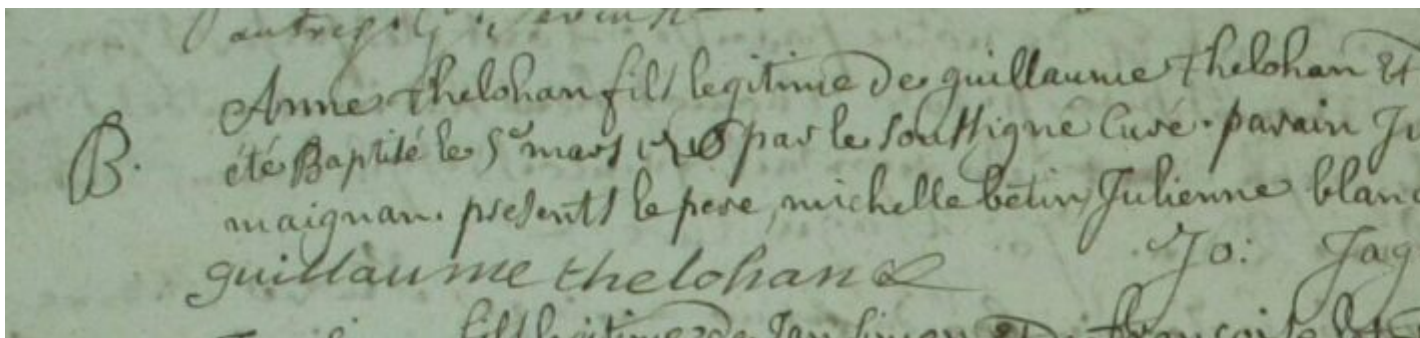 autre
Anne thelohan fils legitime de guillaume thelohan et
B. été Baptisé le 5e mars 1716 par le soussigné Curé. parain Ju
maignan. presents le pere, michelle betin, Julienne blan
guillaume thelohan Jo: Jag
fils legitime de Jan et de francoise